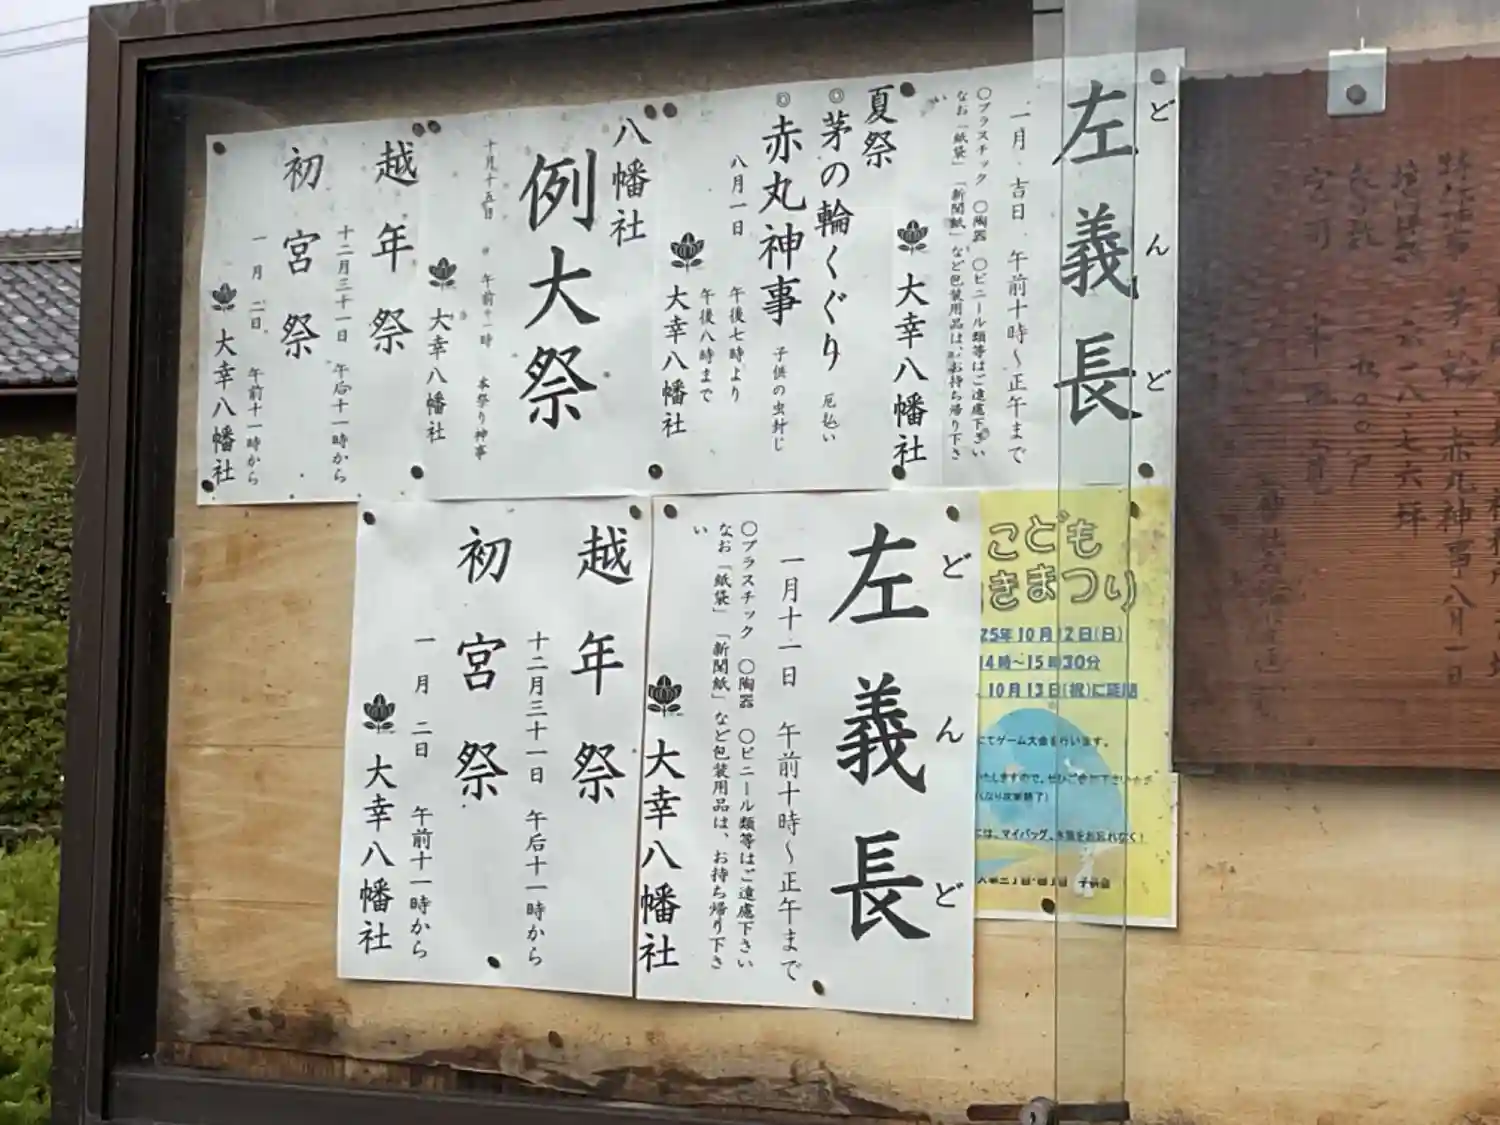 左義長
どんど
一月 吉日 午前十時～正午まで
〇プラスチック 〇陶器 〇ビニール類等はご遠慮下さい
なお「紙袋」「新聞紙」など包装用品は、お持ち帰り下さ
い
大幸八幡社
夏祭
◎茅の輪くぐり 厄払い
◎赤丸神事 子供の虫封じ
八月一日 午後七時より
午後八時まで
大幸八幡社
八幡社
例大祭
十月十五日 午前十一時 本祭り神事
大幸八幡社
越年祭
十二月三十一日 午后十一時から
初宮祭
一月二日 午前十一時から
大幸八幡社
左義長
どんど
一月十一日 午前十時～正午まで
〇プラスチック 〇陶器 〇ビニール類等はご遠慮下さい
なお「紙袋」「新聞紙」など包装用品は、お持ち帰り下さ
い
大幸八幡社
越年祭
十二月三十一日 午后十一時から
初宮祭
一月二日 午前十一時から
大幸八幡社
こども
きまつり
25年10月12日(日)
14時～15時30分
10月13日(祝)に延期
にてゲーム大会を行います。
いたしますので、ぜひご参加下さいませ
くなり次第終了)
には、マイバッグ、水筒をお忘れなく!
子供会
赤丸神事八月一日
六一八七六坪